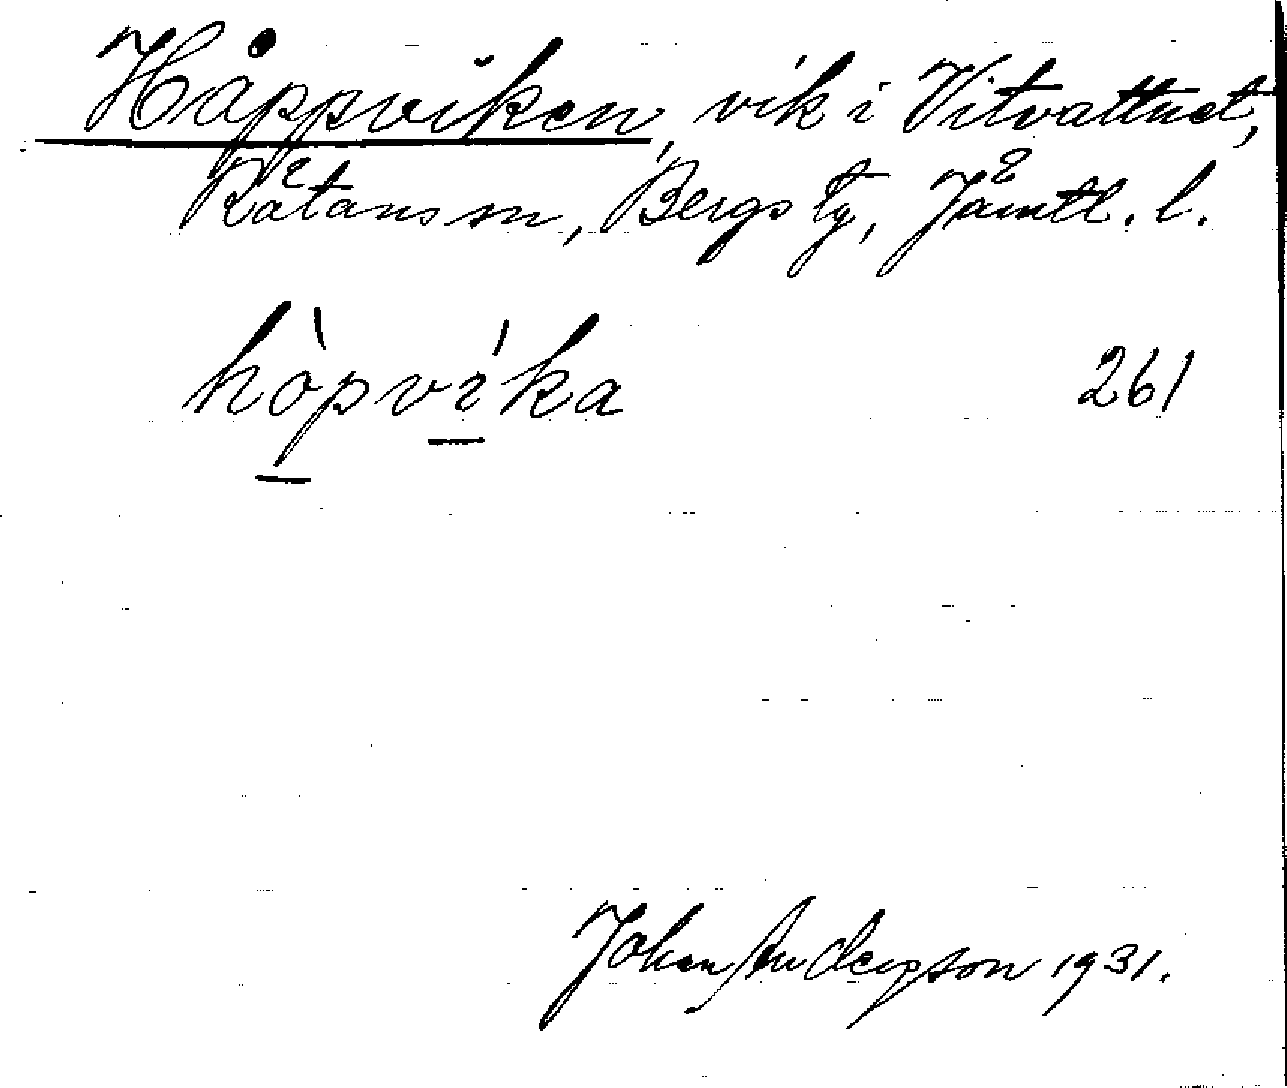 Håppviken, vik i Vitvattnet,
Rätans sn, Bergs tg, Jämtl. l.
hòpvíka 261
Johan Anderson 1931.